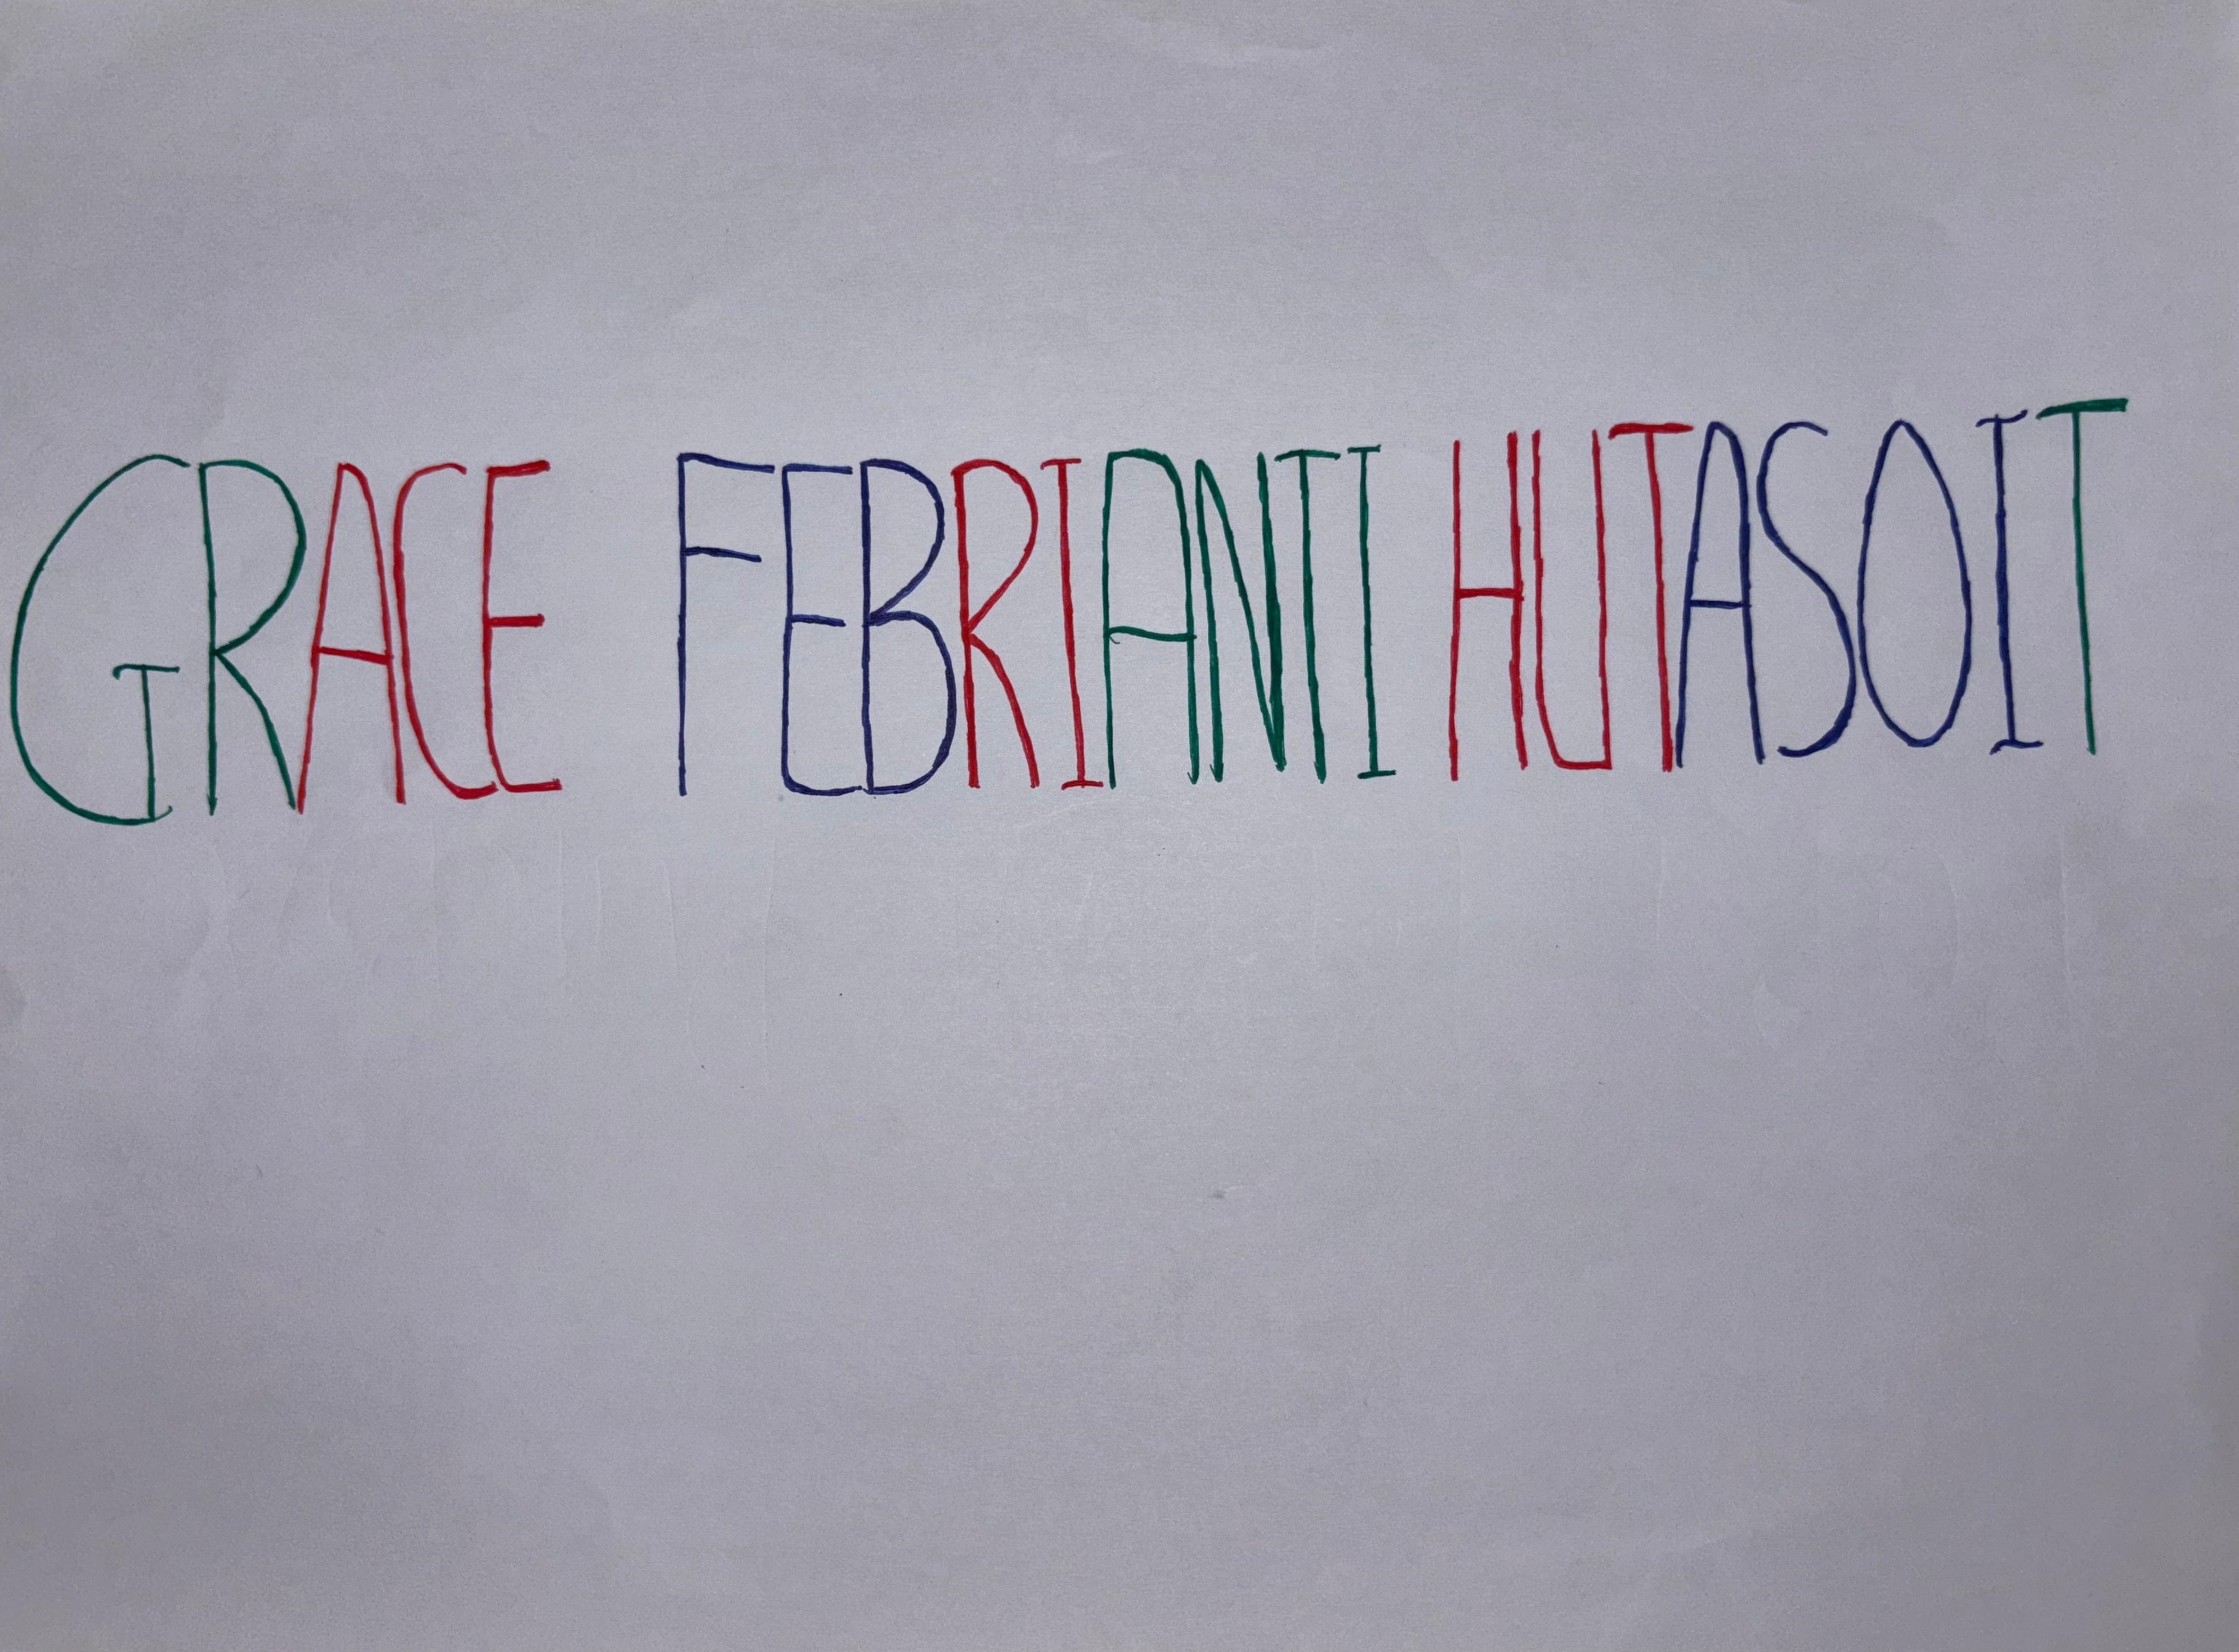 GRACE FEBRIANTI HUTASOIT